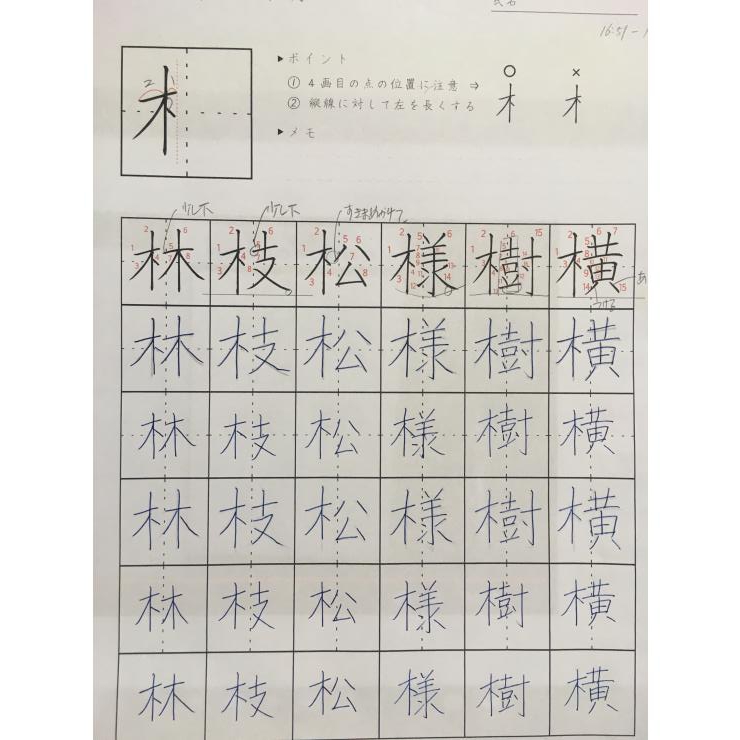 氏名
16:51-1
▶ポイント
① 4画目の点の位置に注意 ⇒
② 縦線に対して左を長くする
▶メモ
○ ×
木 木
木
2 1
少し下 少し下
林 枝 松 様 樹 横
つける
林 枝 松 様 樹 横
林 枝 松 様 樹 横
林 枝 松 様 樹 横
林 枝 松 様 樹 横
林 枝 松 様 樹 横